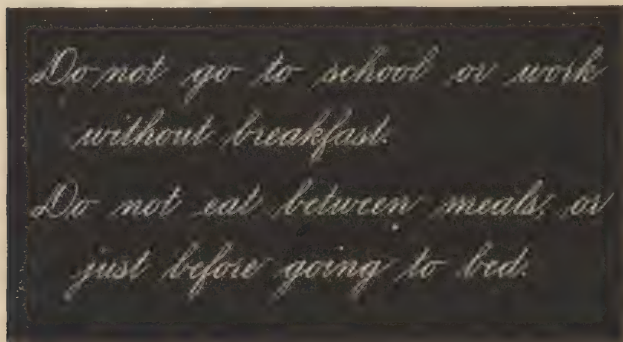 Do not go to school or work
without breakfast.
Do not eat between meals, or
just before going to bed.